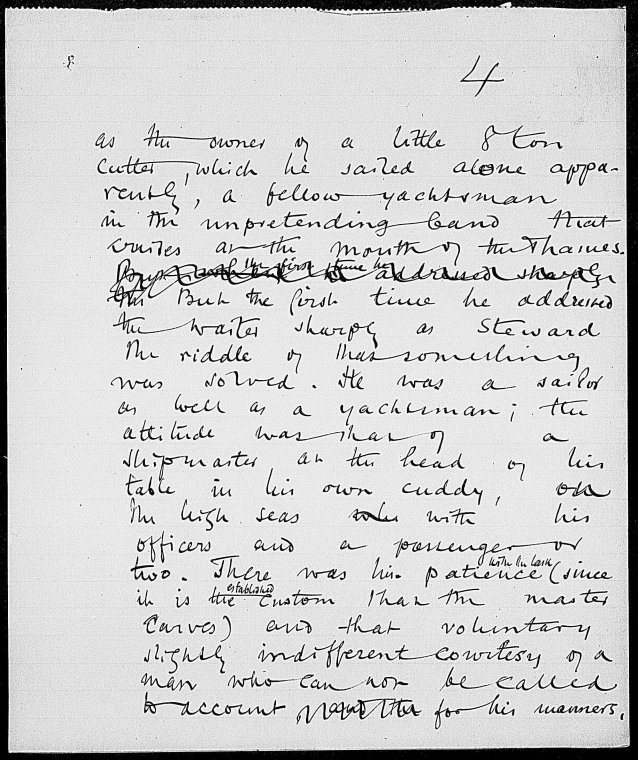 4
as the owner of a little 8 ton
cutter, which he sailed alone appa-
rently, a fellow yachtsman
in the unpretending band that
cruises at the mouth of the Thames.
But the first time he addressed sharply
But the first time he addressed
the waiter sharply as Steward
the riddle of that something
was solved. He was a sailor
as well as a yachtsman; the
attitude was that of a
shipmaster at the head of his
table in his own cuddy, on
the high seas with his
officers and a passenger or
with his task
two. There was his patience (since
established
it is the custom that the master
carves) and that voluntary
slightly indifferent courtesy of a
man who can not be called
to account for his manners.